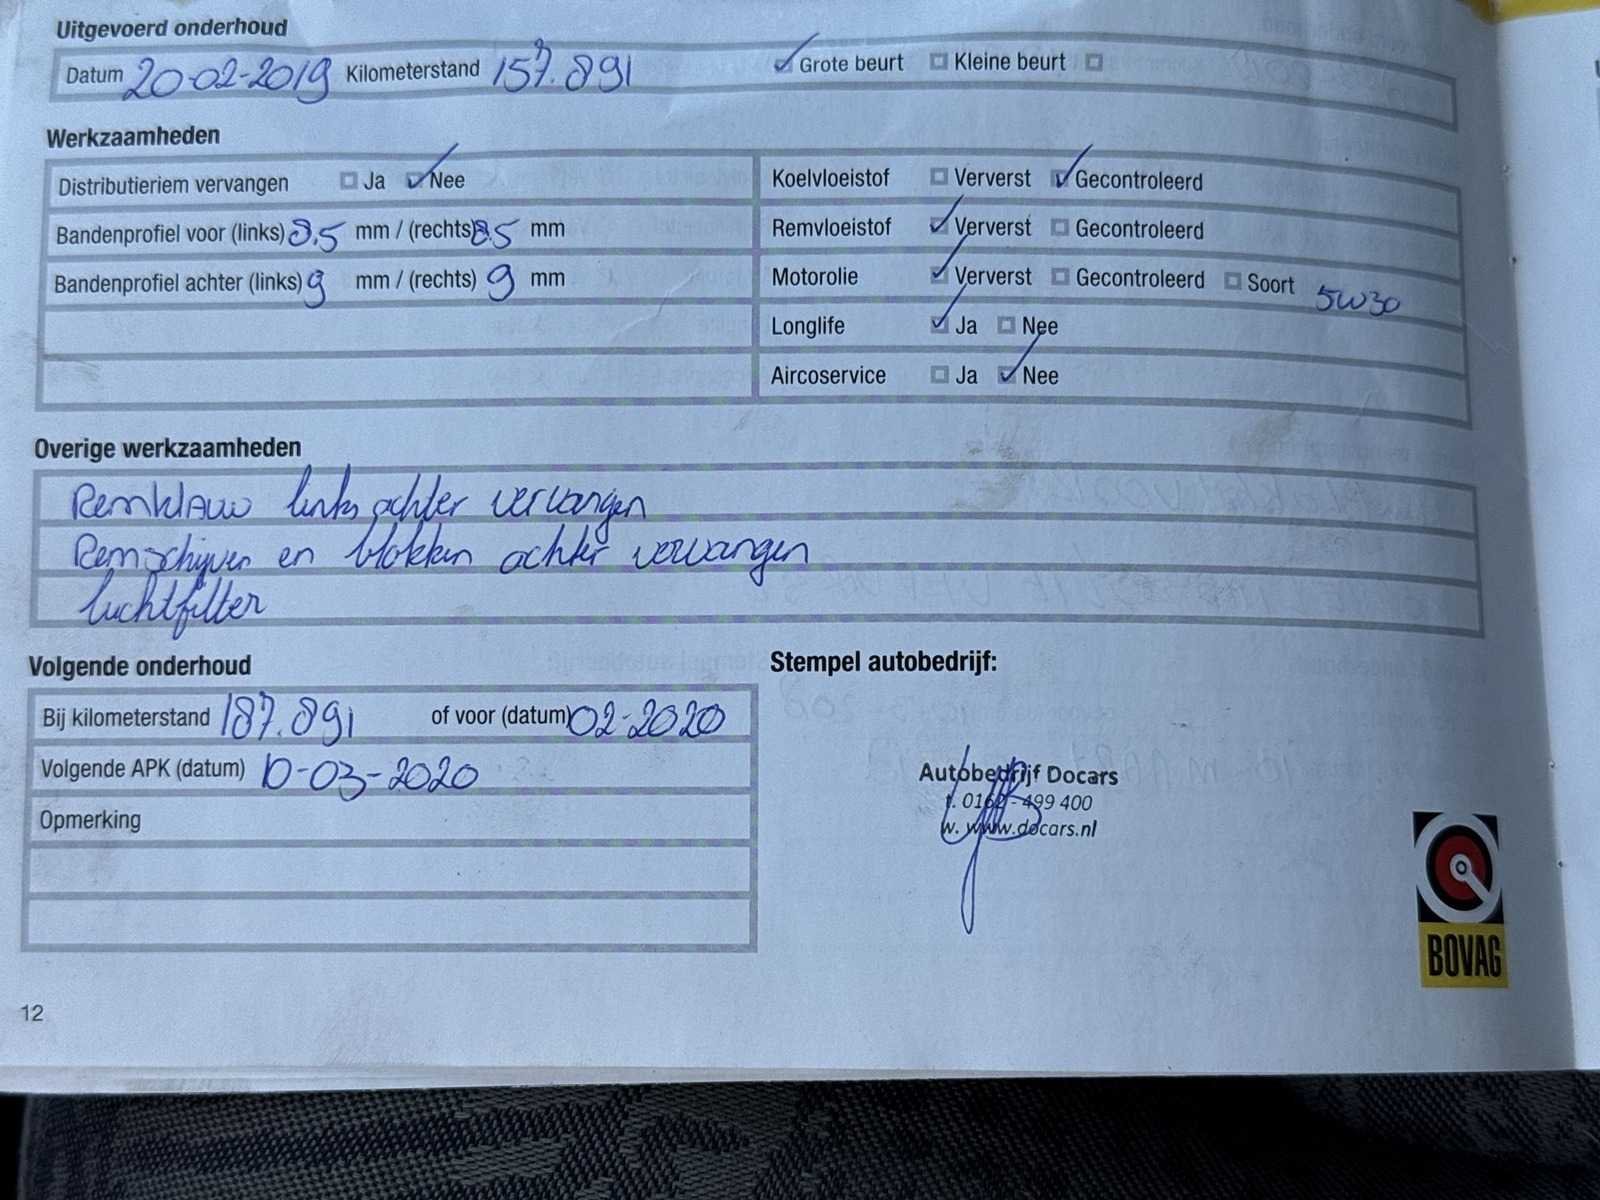 Uitgevoerd onderhoud
Datum 20-02-2019 Kilometerstand 157.891 Grote beurt Kleine beurt
Werkzaamheden
Distributieriem vervangen Ja Nee
Bandenprofiel voor (links) 8,5 mm / (rechts) 8.5 mm
Bandenprofiel achter (links) 9 mm / (rechts) 9 mm
Koelvloeistof Ververst Gecontroleerd
Remvloeistof Ververst Gecontroleerd
Motorolie Ververst Gecontroleerd Soort 5W30
Longlife Ja Nee
Aircoservice Ja Nee
Overige werkzaamheden
Remklauw links achter vervangen
Remschijven en blokken achter vervangen
luchtfilter
Volgende onderhoud
Bij kilometerstand 187.891 of voor (datum) 02-2020
Volgende APK (datum) 10-03-2020
Opmerking
Stempel autobedrijf:
Autobedrijf Docars
t. 0162 - 499 400
w. www.docars.nl
BOVAG
12